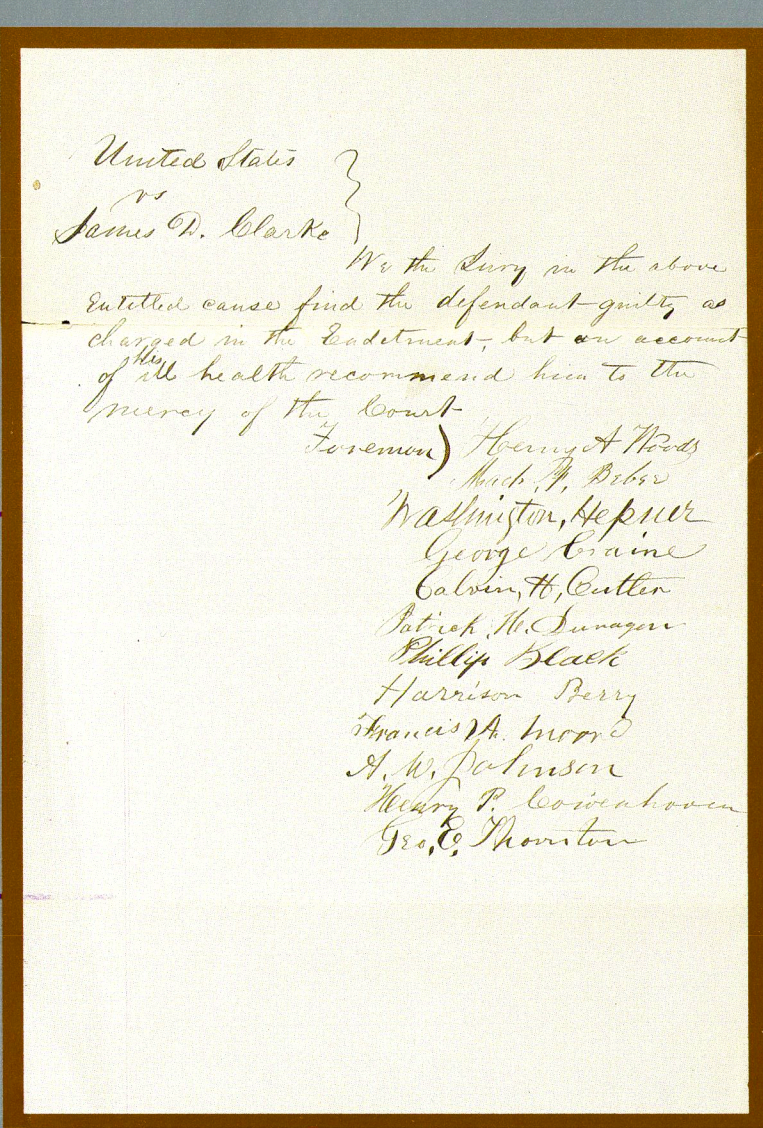 United States
vs
James D. Clarke
We the Jury in the above
Entitled cause find the defendant guilty as
charged in the Endctment, but on account
of his ill health recommend him to the
mercy of the Court
Foreman) Henry A Woods
F. Beber
Washington, Hepner
George Craine
Calvin, H, Cutler
Patrick H. Dunagon
Phillip Black
Harrison Berry
Francis A. Moore
A. W. Johnson
Henry P. Cowenhoven
Geo, E, Thornton